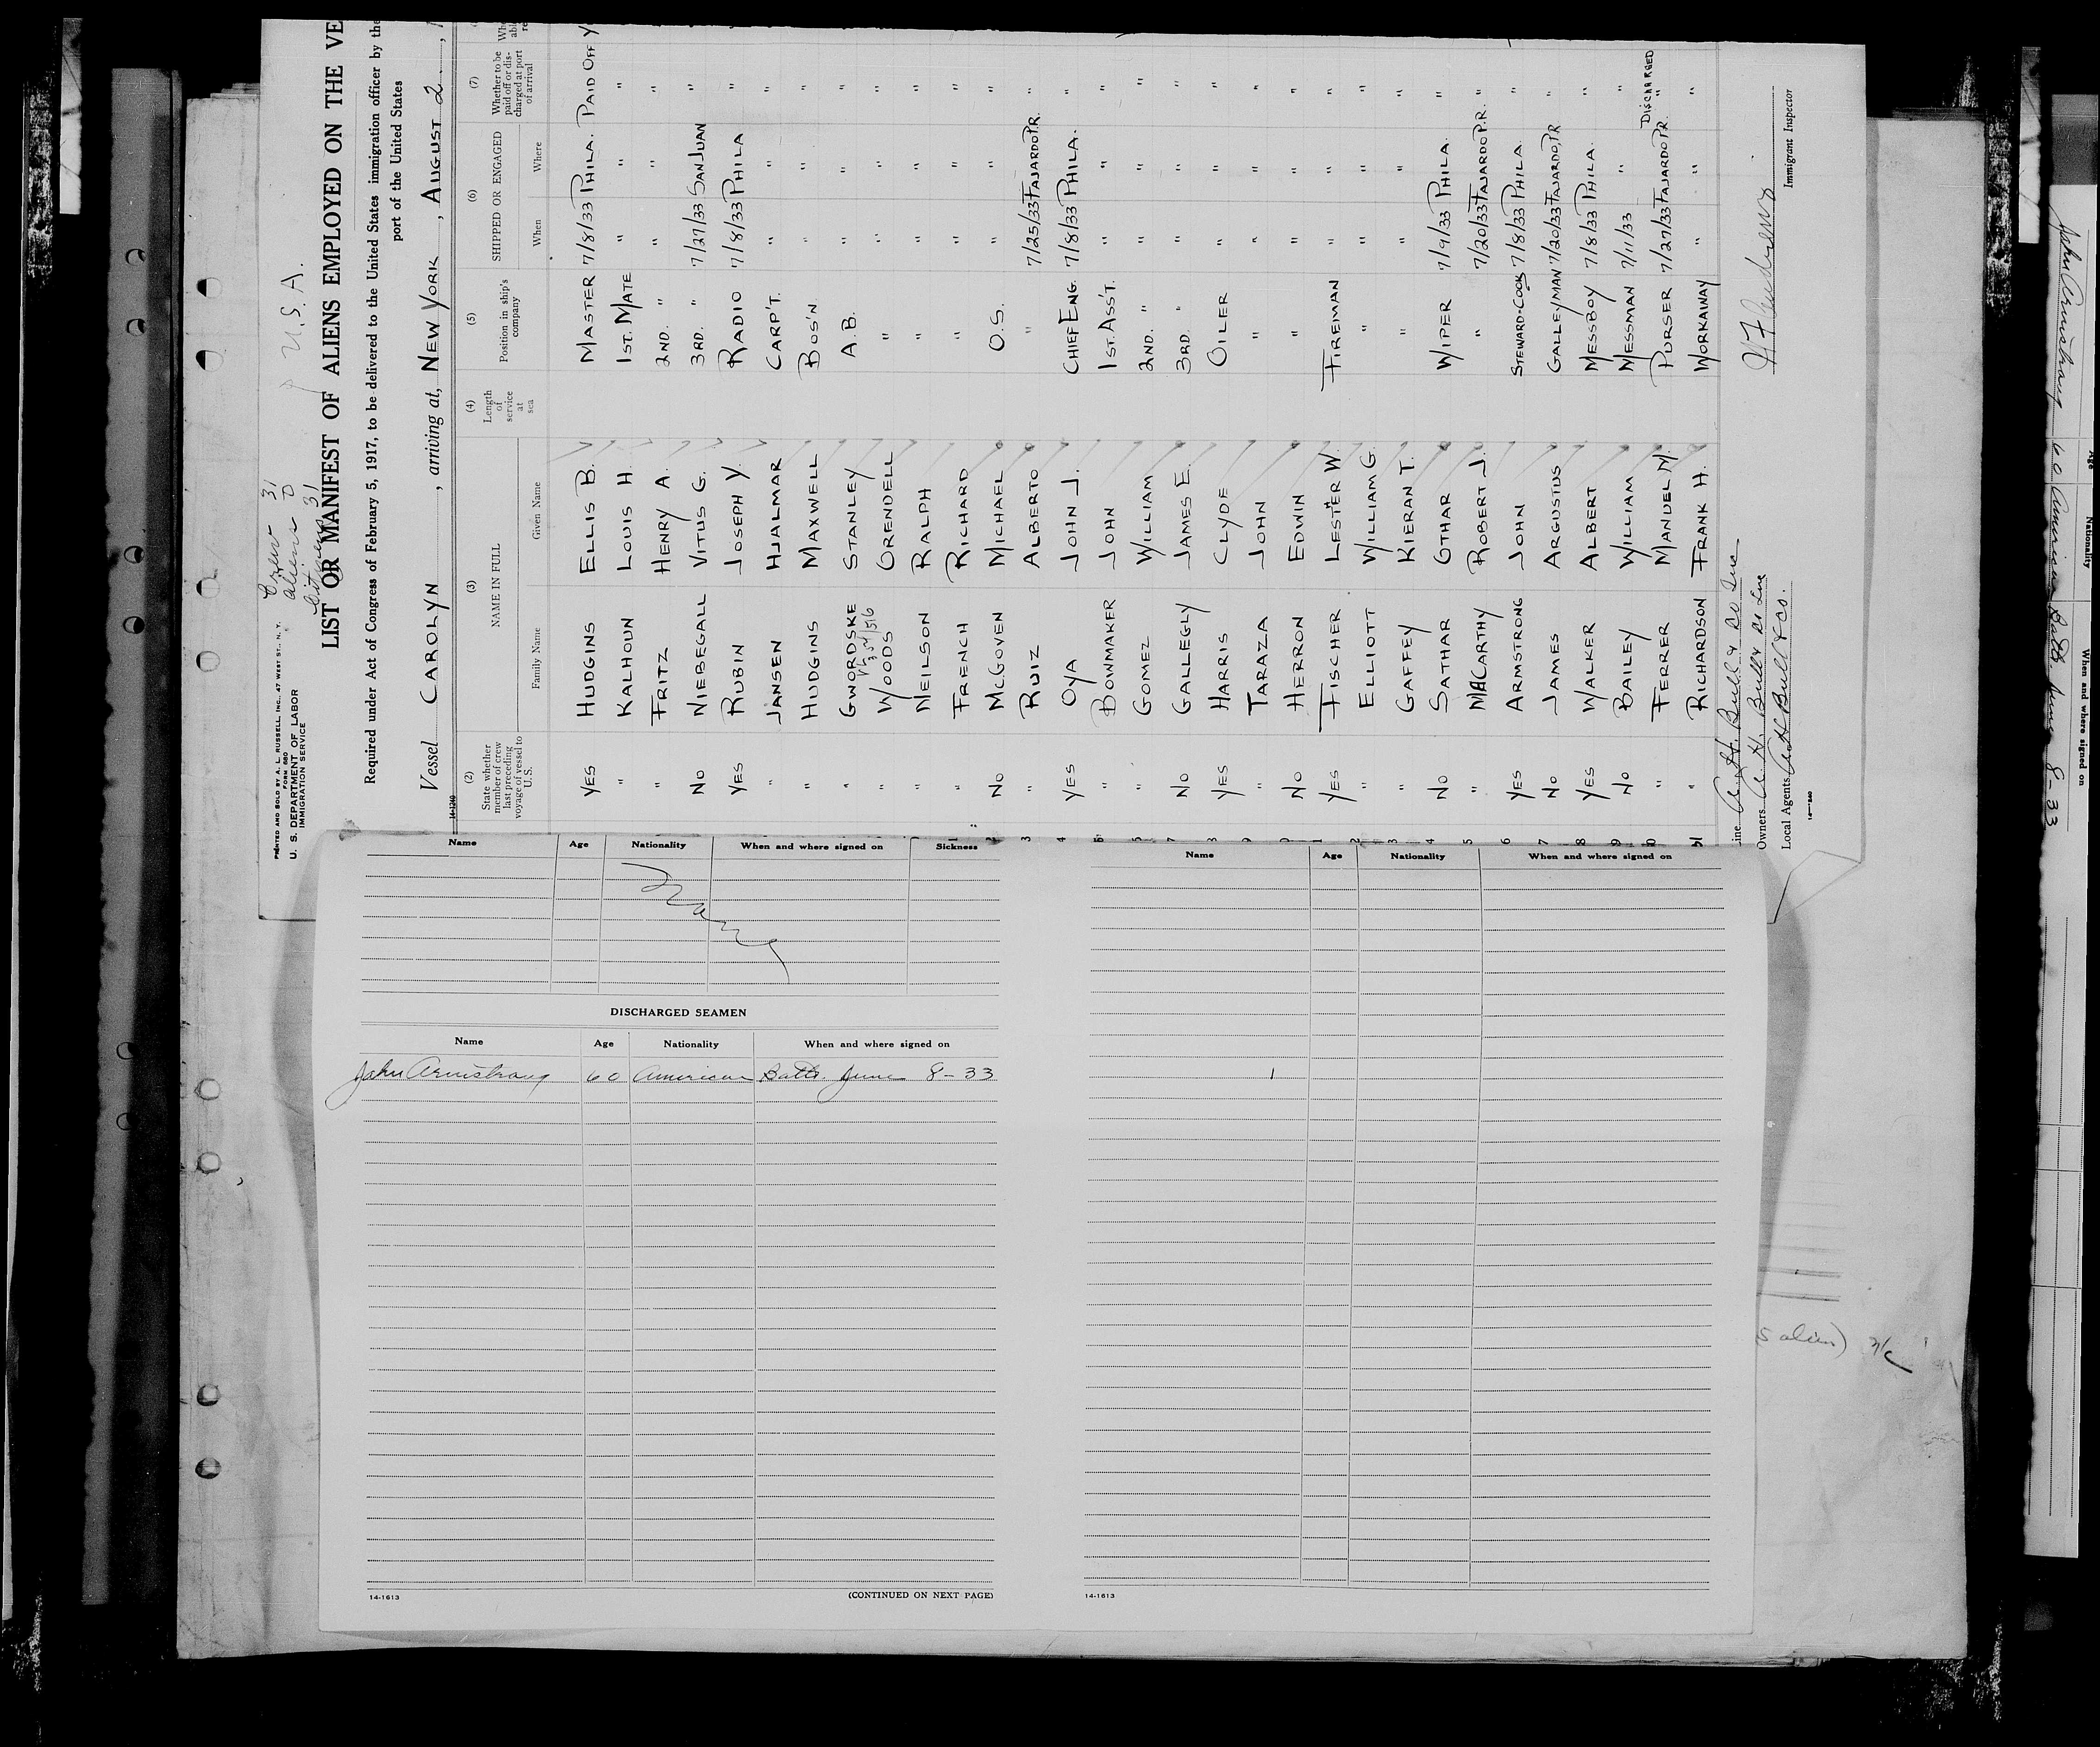 U.S.A.
Crew 31
Aliens 0
Citizens 31
PRINTED AND SOLD BY A. L. RUSSELL, INC. 47 WEST ST., N. Y.
FORM 680
U. S. DEPARTMENT OF LABOR
IMMIGRATION SERVICE
LIST OR MANIFEST OF ALIENS EMPLOYED ON THE VE
Required under Act of Congress of February 5, 1917, to be delivered to the United States immigration officer by the
port of the United States
Vessel CAROLYN , arriving at, NEW YORK , AUGUST 2. ,
14-1240
(2) (3) (4) (5) (6) (7)
State whether member of crew last preceding voyage of vessel to U.S. NAME IN FULL Length of service at sea Position in ship's company SHIPPED OR ENGAGED Whether to be paid off or discharged at port of arrival
Family Name Given Name When Where
YES HUDGINS ELLIS B. MASTER 7/8/33 PHILA. PAID OFF
" KALHOUN LOUIS H 1ST. MATE " " "
" FRITZ HENRY A. 2ND. " " " "
NO NIEBEGALL VITUS G. 3RD. " 7/27/33 SAN JUAN "
YES RUBIN JOSEPH Y RADIO 7/8/33 PHILA "
" JANSEN HJALMAR CARP'T. " " "
" HUDGINS MAXWELL BOS'N " " "
" GWORDSKE STANLEY A.B. " " "
" WOODS ORENDELL " " " "
" NEILSON RALPH " " " "
" FRENCH RICHARD " " " "
NO MCGOVEN MICHAEL O.S. " " "
" RUIZ ALBERTO " 7/25/33 FAJARDO P.R. "
YES OYA JOHN J. CHIEF ENG. 7/8/33 PHILA. "
" BOWMAKER JOHN 1ST. ASS'T. " " "
" GOMEZ WILLIAM 2ND. " " " "
NO GALLEGLY JAMES E. 3RD. " " " "
YES HARRIS CLYDE OILER " " "
" TARAZA JOHN " " " "
NO HERRON EDWIN " " " "
YES FISCHER LESTER W. FIREMAN " " "
" ELLIOTT WILLIAM G. " " " "
" GAFFEY KIERAN T. " " " "
NO SATHAR GTHAR WIPER 7/9/33 PHILA. "
" MACARTHY ROBERT J. " 7/20/33 FAJARDO P.R. "
YES ARMSTRONG JOHN STEWARD-COOK 7/8/33 PHILA. "
NO JAMES ARGUSTUS GALLEYMAN 7/20/33 FAJARDO, PR "
YES WALKER ALBERT MESSBOY 7/8/33 PHILA. "
NO BAILEY WILLIAM MESSMAN 7/11/33 " "
" FERRER MANUEL M. PURSER 7/27/33 FAJARDO PR. " DISCHARGED
" RICHARDSON FRANK H. WORKAWAY " " "
Line A. H. Bull & Co Inc
Owners A. H. Bull & Co Inc
Local Agents A H Bull & Co.
Immigrant Inspector
Name Age Nationality When and where signed on Sickness
None
DISCHARGED SEAMEN
Name Age Nationality When and where signed on
John Armstrong 60 American Balto. June 8-33
14-1613 (CONTINUED ON NEXT PAGE)
Name Age Nationality When and where signed on
14-1613
Age Nationality When and where signed on
John Armstrong 60 American Balto June 8-33